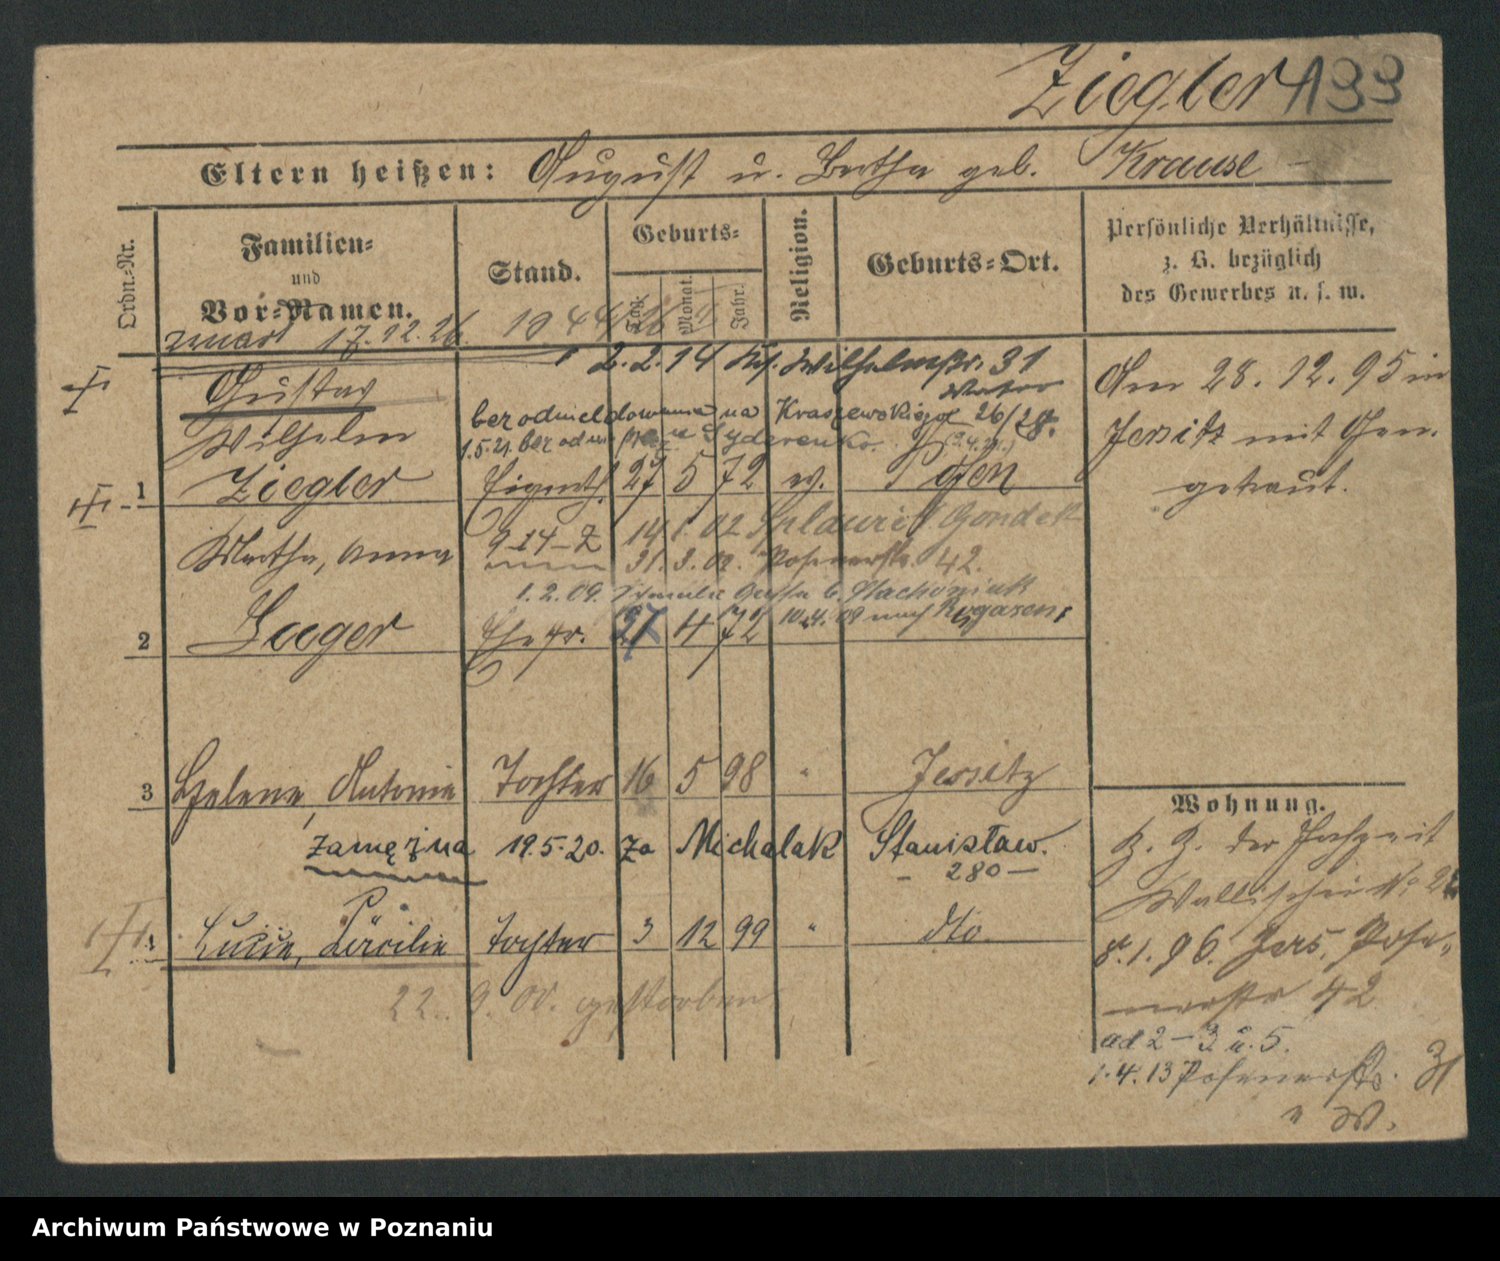 Ziegler 133
Eltern heißen: August u. Bertha geb. Krause
Ordn.-Nr.
Familien-
und
Vor-Namen.
Stand.
Geburts-
Tag.
Monat.
Jahr.
Religion.
Geburts-Ort.
Persönliche Verhältnisse,
z. B. bezüglich
des Gewerbes u. s. w.
zmarł 17.12.26.
2.2.14 Wilhelmstr. 31
Gustav
Wilhelm
bez odmeldowania na Kraszewskiego 26/28.
1.5.21. bez odm
1 Ziegler Eigenth. 27 5 72 ev. Posen
Am 28.12.95 in
Jersitz mit Gen.
getraut.
Martha, Anna 14 1. 02 Gondek
31. 3. 02. Posenerstr. 42.
1.2.09.
10.4.09 nach Rogasen
2 Jaeger Ehefr. 27 4 72
3 Helene, Antonie Tochter 16 5 98 " Jersitz
Zamężna 19.5.20. za Michalak Stanisław.
- 280 -
Lucie, Cäcilie Tochter 3 12 99 " dto.
22. 9. 00. gestorben
Wohnung.
z. Z. der Hochzeit
Wallischei No 2
8.1.96. Jers. Pose-
nerstr 42
ad 2 - 3 u. 5.
1.4.13 Posenerstr. 31
Archiwum Państwowe w Poznaniu